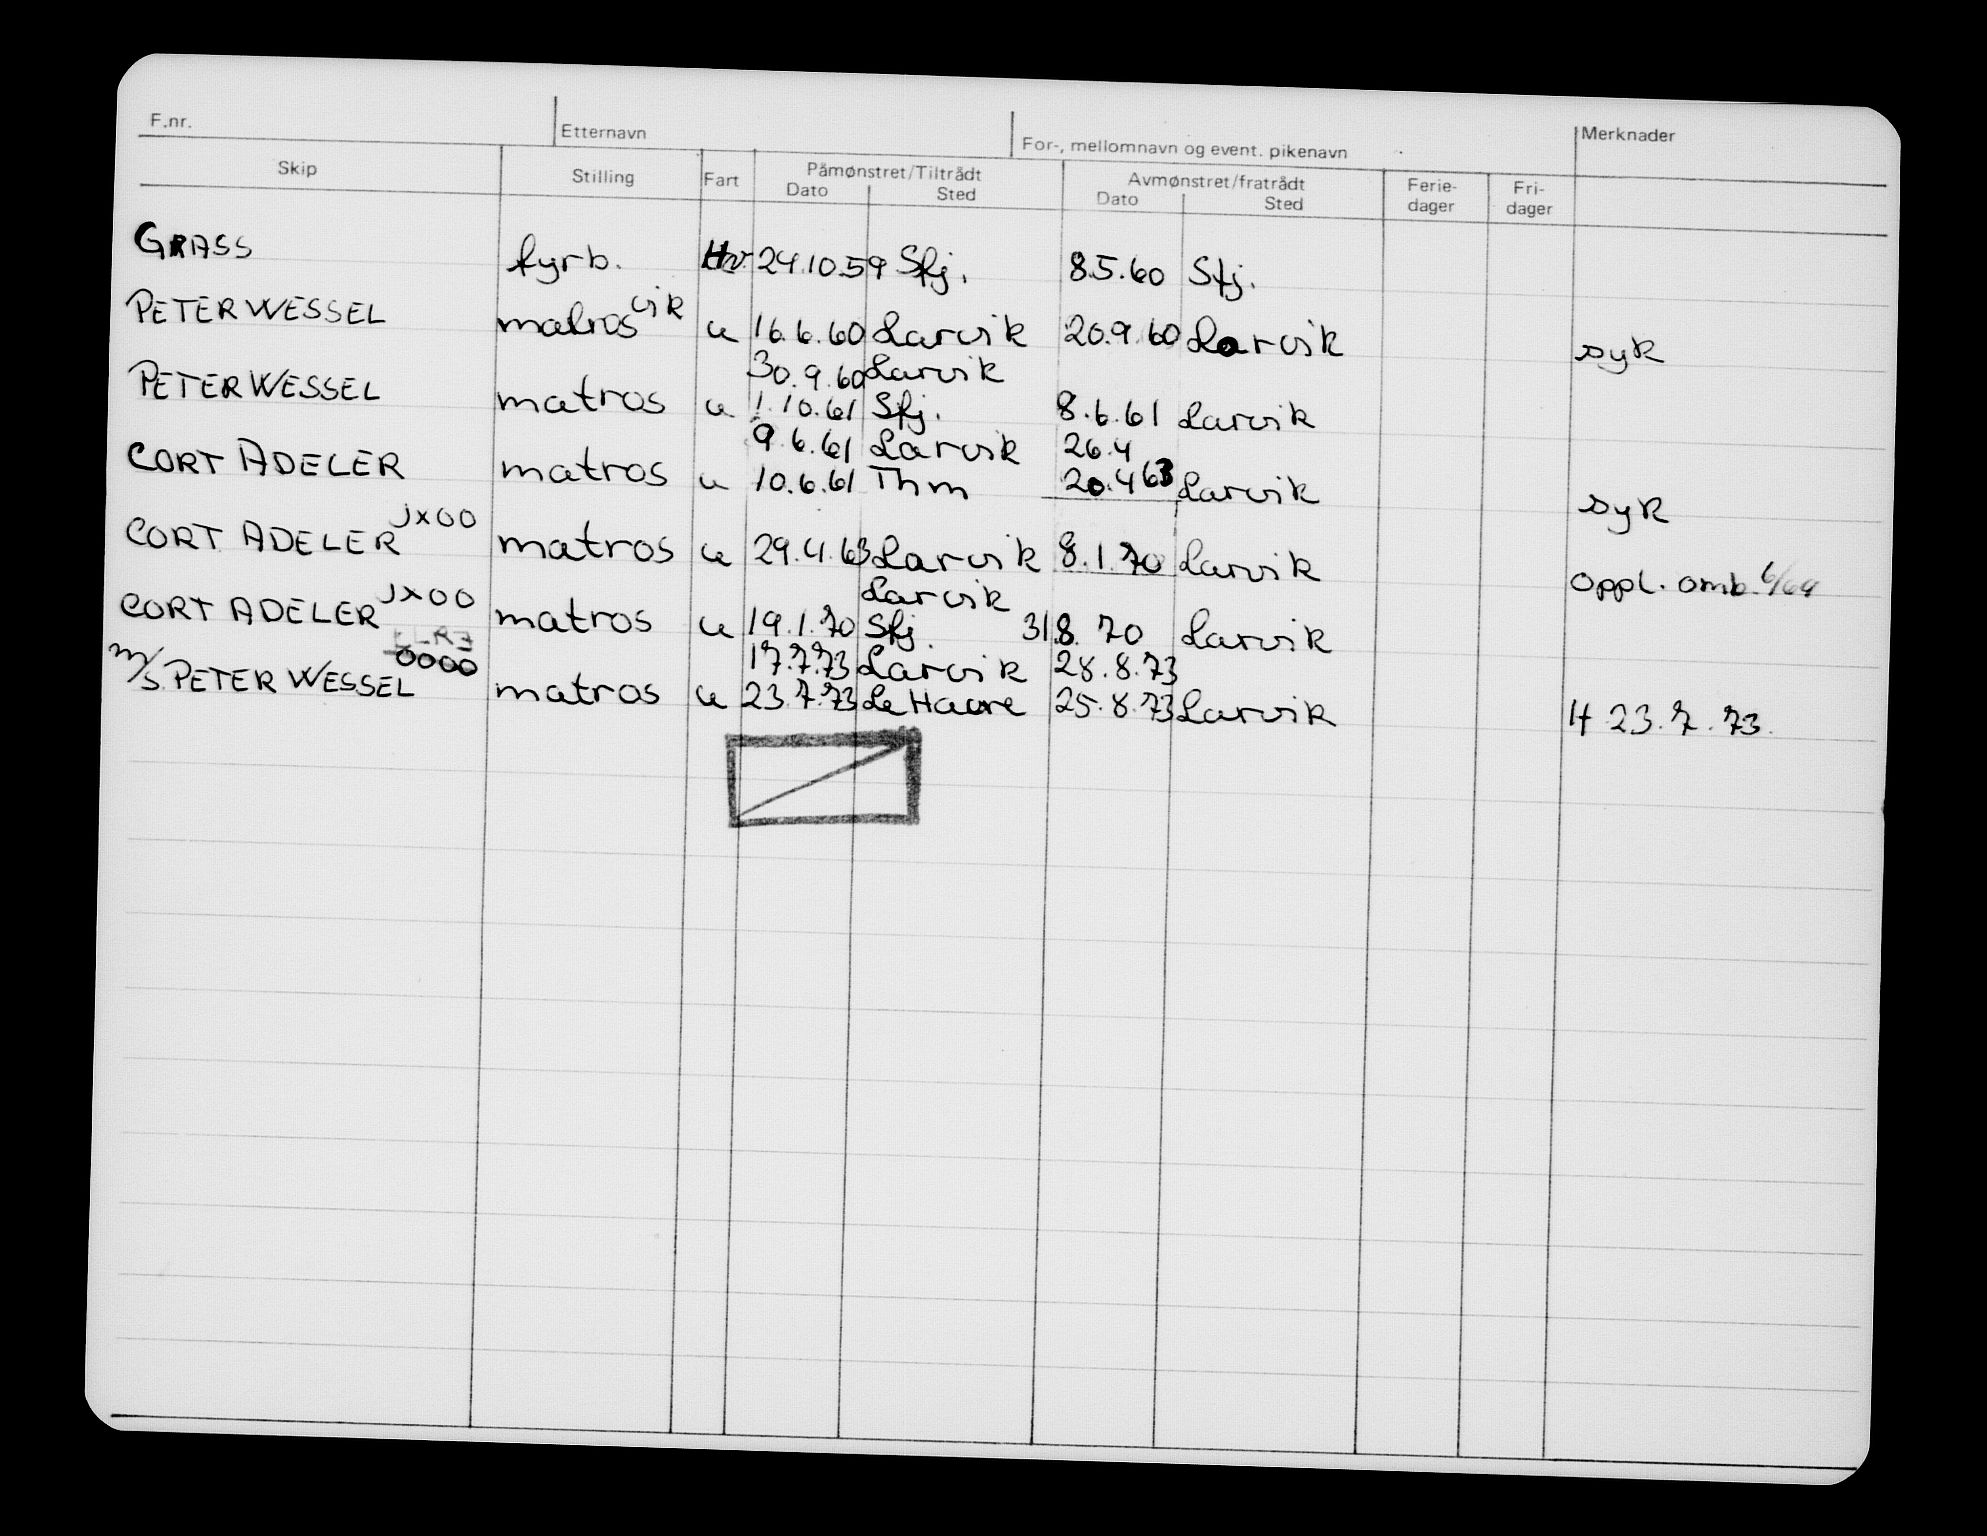 F.nr. Etternavn For-, mellomnavn og event. pikenavn Merknader
Skip Stilling Fart Påmønstret/Tiltrådt Avmønstret/fratrådt Ferie- Fri-
Dato Sted Dato Sted dager dager
GRASS fyrb. Hv. 24.10.59 Sfj. 8.5.60 Sfj.
PETER WESSEL matros vik u 16.6.60 Larvik 20.9.60 Larvik syk
30.9.60 Larvik
PETER WESSEL matros u 1.10.61 Sfj. 8.6.61 Larvik
9.6.61 Larvik 26.4
CORT ADELER matros u 10.6.61 Thm 20.4 63 Larvik syk
JX00
CORT ADELER matros u 29.4.63 Larvik 8.1.70 Larvik oppl. omb. 6/69
JX00 Larvik
CORT ADELER matros u 19.1.70 Sfj. 31 8. 70 Larvik
0000 17.7.73 Larvik 28.8.73
m/s. PETER WESSEL matros u 23.7.73 Le Havre 25.8.73 Larvik H 23.7.73.